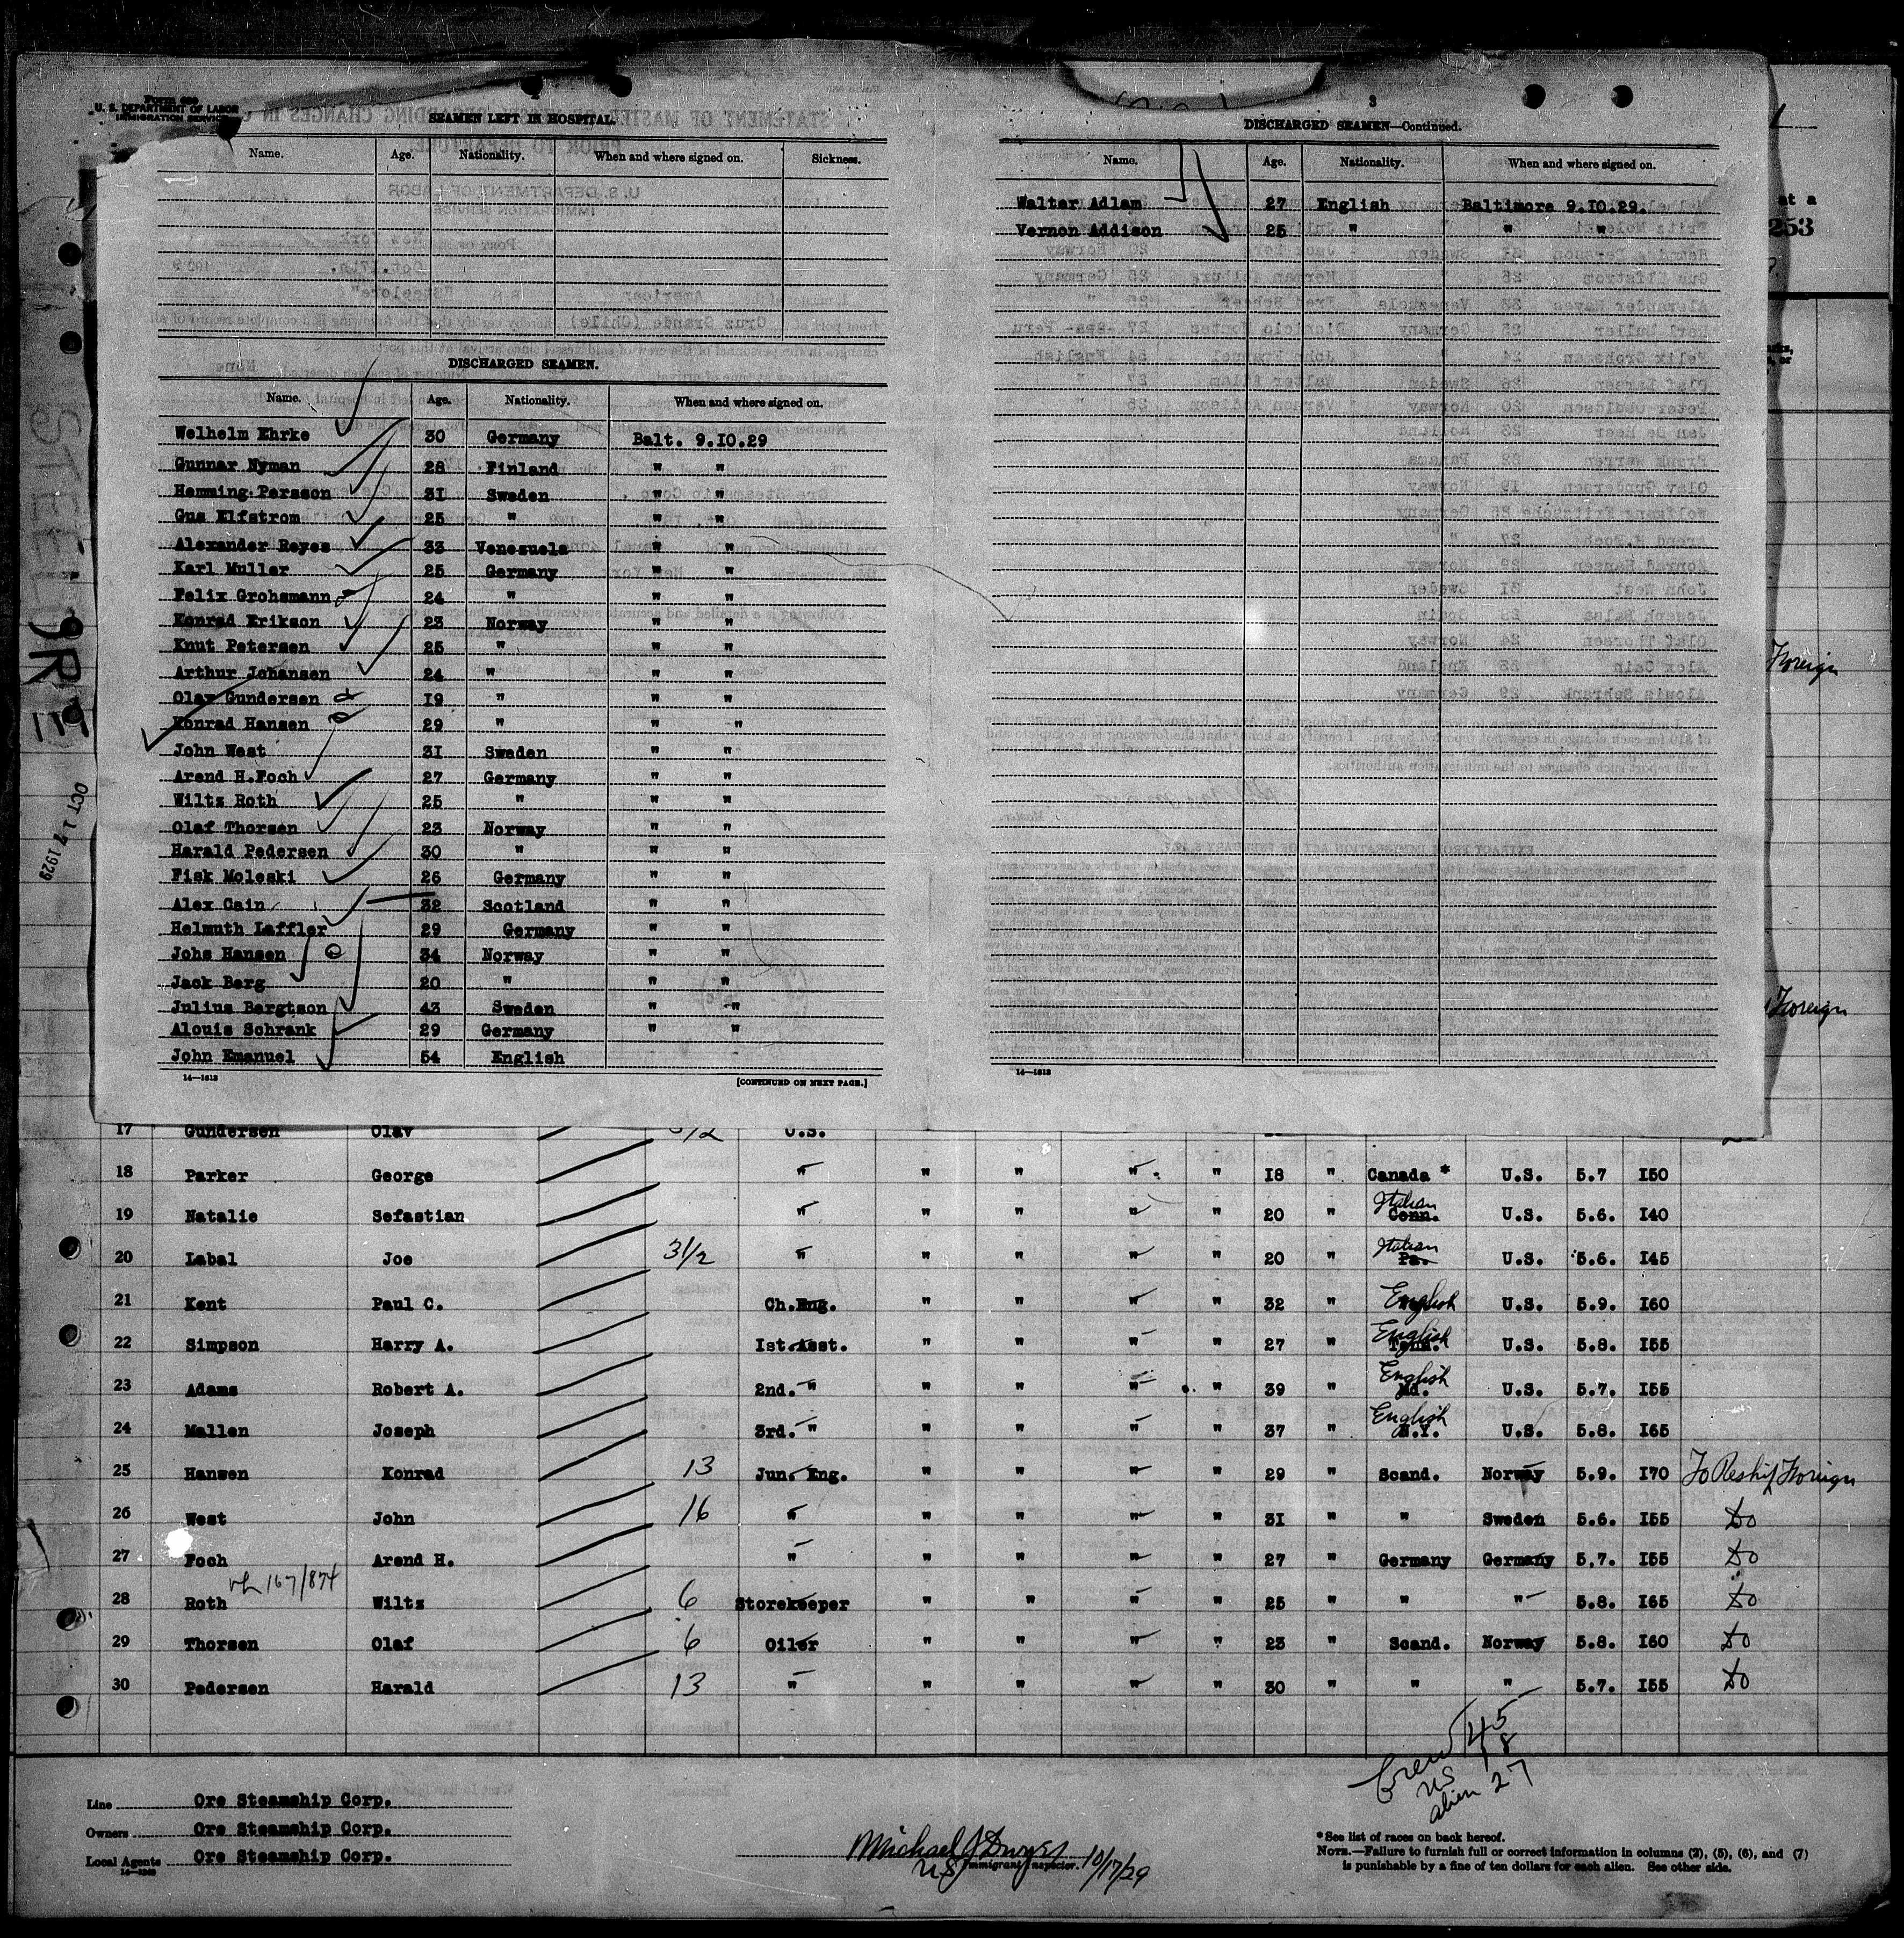 U. S. DEPARTMENT OF LABOR
IMMIGRATION SERVICE
SEAMEN LEFT IN HOSPITAL.
Name. Age. Nationality. When and where signed on. Sickness.
DISCHARGED SEAMEN.
Name. Age. Nationality. When and where signed on.
Welhelm Ehrke 30 Germany Balt. 9.I0.29
Gunnar Nyman 28 Finland " "
Hemming Persson 3I Sweden " "
Gus Elfstrom 25 " " "
Alexander Reyes 33 Venezuela " "
Karl Muller 25 Germany " "
Felix Grohsmann 24 " " "
Konrad Erikson 23 Norway " "
Knut Petersen 25 " " "
Arthur Johansen 24 " " "
Olav Gundersen I9 " " "
Konrad Hansen 29 " " "
John West 3I Sweden " "
Arend H.Foch 27 Germany " "
Wiltz Roth 25 " " "
Olaf Thorsen 23 Norway " "
Harald Pedersen 30 " " "
Fisk Moleski 26 Germany " "
Alex Cain 32 Scotland " "
Helmuth Laffler 29 Germany " "
Johs Hansen 34 Norway " "
Jack Berg 20 " " "
Julius Bergtson 43 Sweden " "
Alouis Schrank 29 Germany " "
John Emanuel 54 English
14—1613 [CONTINUED ON NEXT PAGE.]
3
DISCHARGED SEAMEN—Continued.
Name. Age. Nationality. When and where signed on.
Walter Adlam 27 English Baltimore 9.I0.29.
Vernon Addison 25 " " "
14—1613
at a
253
Foreign
Foreign
STEELORE
OCT 17 1929
17 Gundersen Olav U.S.
18 Parker George " " " " " I8 " Canada * U.S. 5.7 I50
19 Natalie Sefastian " " " " " 20 " Italian Conn. U.S. 5.6. I40
20 Labal Joe 3 1/2 " " " " " 20 " Italian Pa. U.S. 5.6. I45
21 Kent Paul C. Ch.Eng. " " " " 32 " English U.S. 5.9. I60
22 Simpson Harry A. Ist.Asst. " " " " 27 " English Tenn. U.S. 5.8. I55
23 Adams Robert A. 2nd. " " " " " 39 " English Md. U.S. 5.7. I55
24 Mallen Joseph 3rd. " " " " " 37 " English N.Y. U.S. 5.8. I65
25 Hansen Konrad 13 Jun. Eng. " " " " 29 " Scand. Norway 5.9. I70 To Reship Foreign
26 West John 16 " " " " " 3I " " Sweden 5.6. I55 Do
27 Foch Arend H. " " " " " 27 " Germany Germany 5.7. I55 Do
167/874
28 Roth Wiltz 6 Storekeeper " " " " 25 " " " 5.8. I65 Do
29 Thorsen Olaf 6 Oiler " " " " 23 " Scand. Norway 5.8. I60 Do
30 Pedersen Harald 13 " " " " " 30 " " " 5.7. I55 Do
Crew 45
US 18
alien 27
Line Ore Steamship Corp.
Owners Ore Steamship Corp.
Local Agents Ore Steamship Corp.
Michael J Dwyer 10/17/29
US Immigrant Inspector.
*See list of races on back hereof.
NOTE.—Failure to furnish full or correct information in columns (2), (5), (6), and (7)
is punishable by a fine of ten dollars for each alien. See other side.